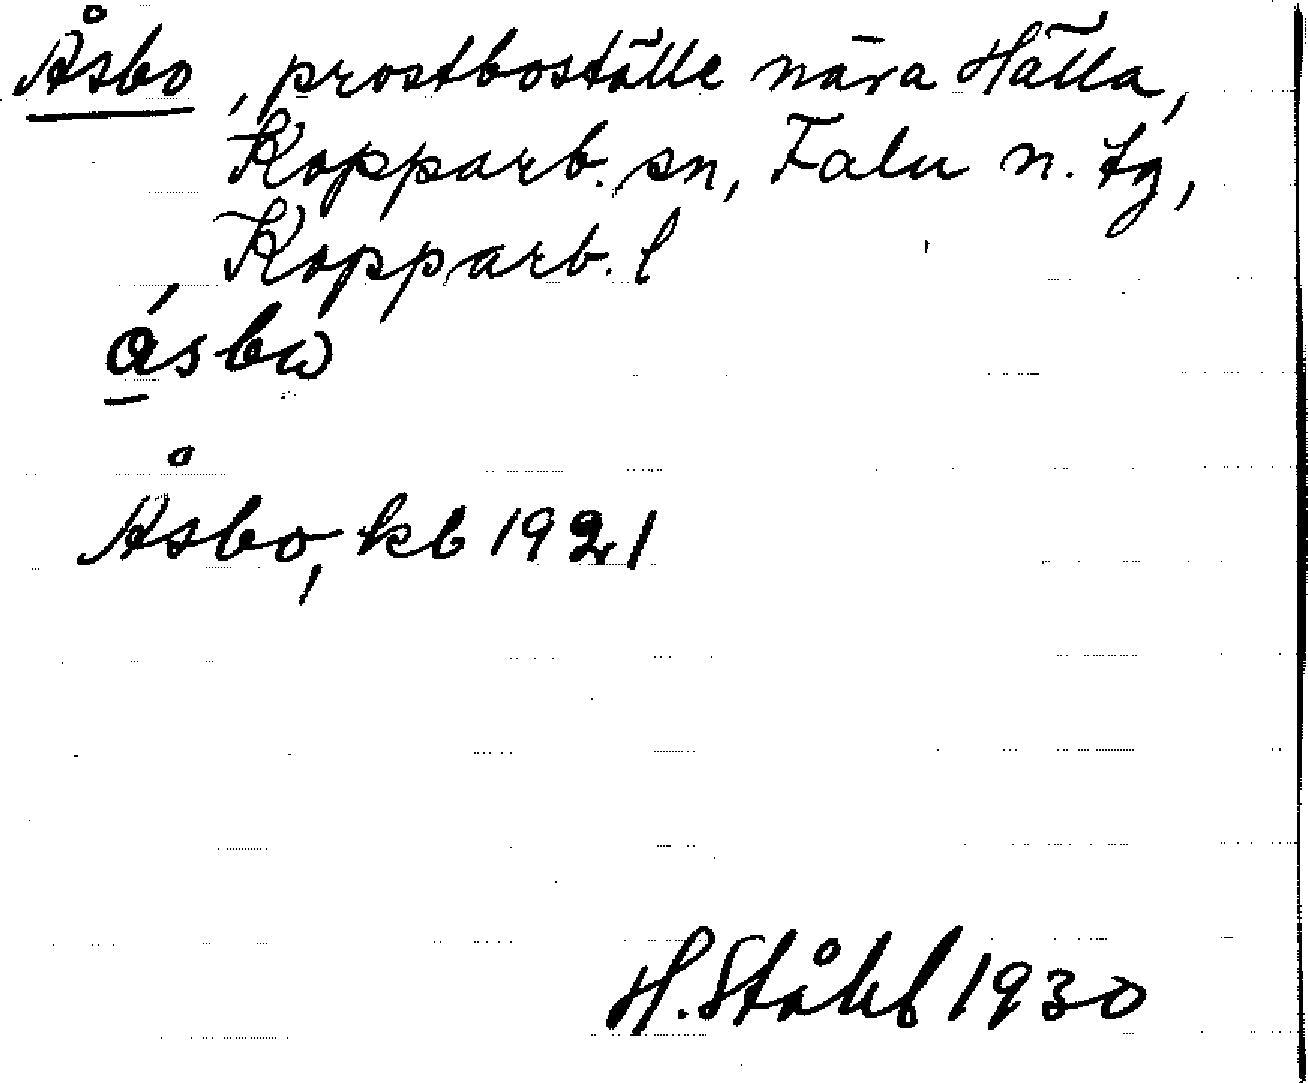 Åsbo, prostboställe nära Hälla,
Kopparb. sn, Falu n. tg,
Kopparb. l
ásbω
Åsbo, kb 1921
H. Ståhl 1930